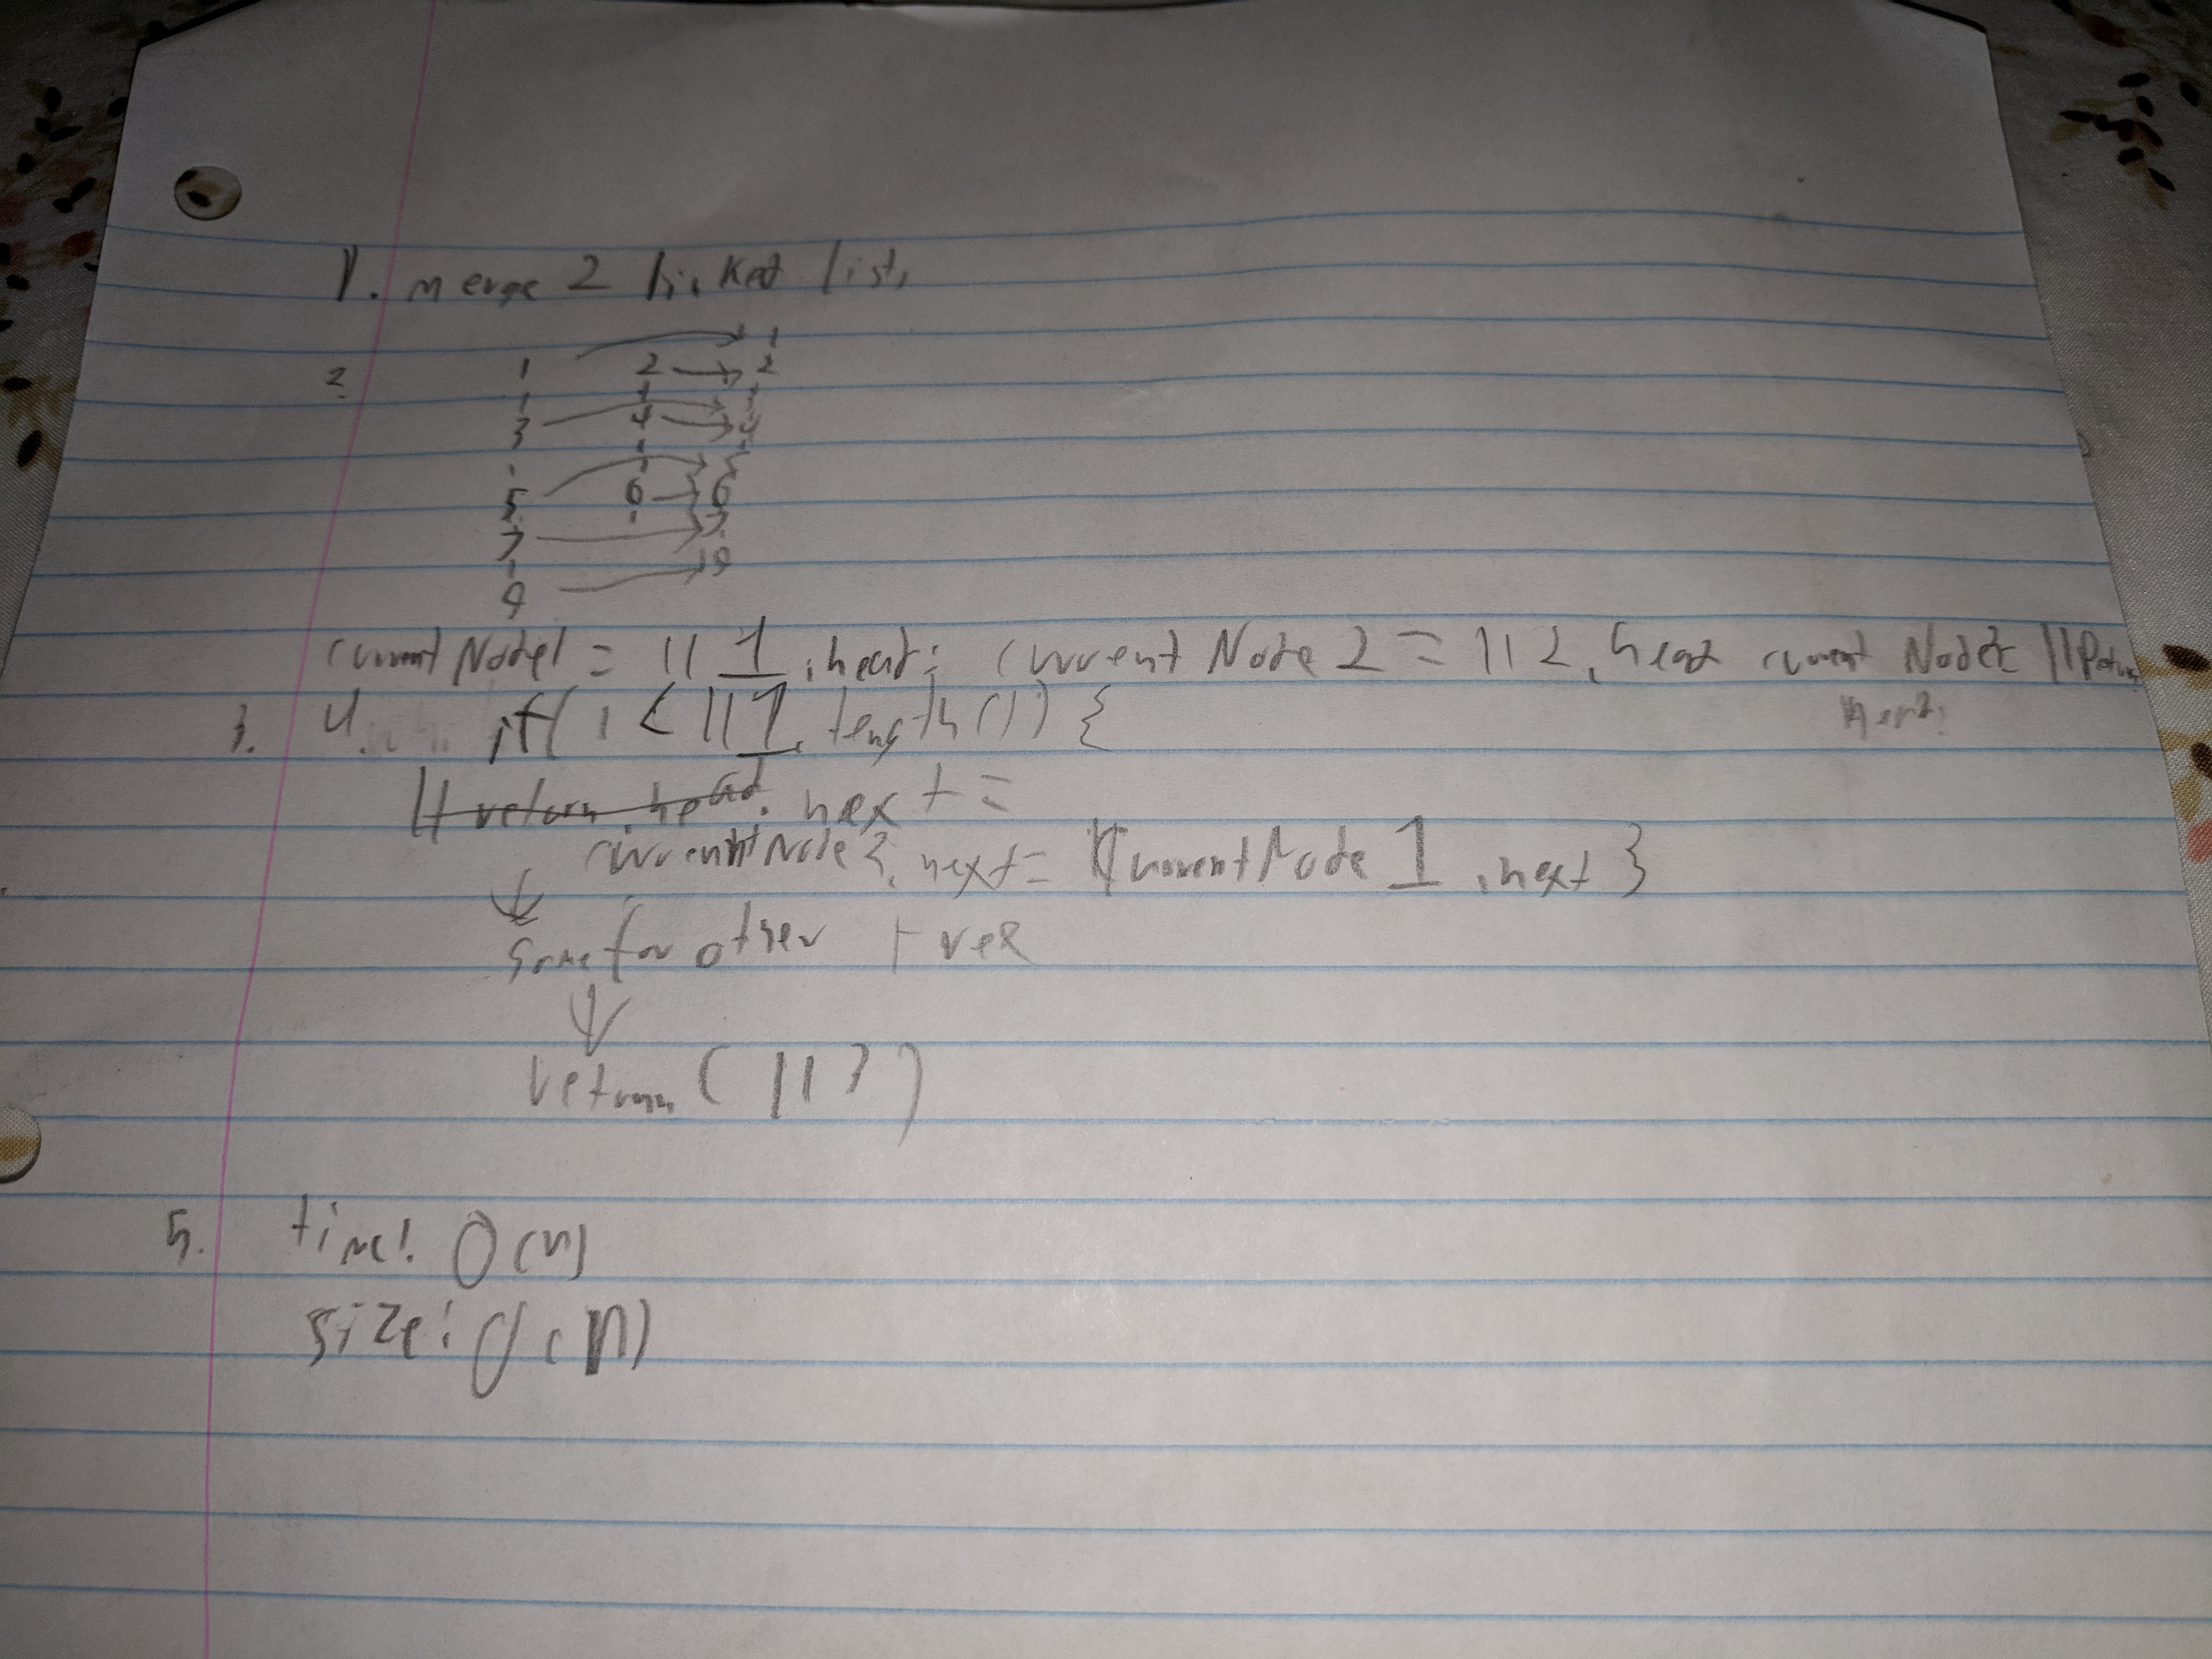 1. merge 2 linked lists
2.
1 2 → 2 1
3 4 →
5 6 → 6
7 → 7
9 → 9
currentNode1 = ll1.head; currentNode2 = ll2.head current Node
next;
3. 4. if( i < ll1.length()) {
llreturn.head.next =
currentNode3.next = currentNode1.next }
↓
same for other
↓
return (ll3)
5. time: O(n)
size: O(n)